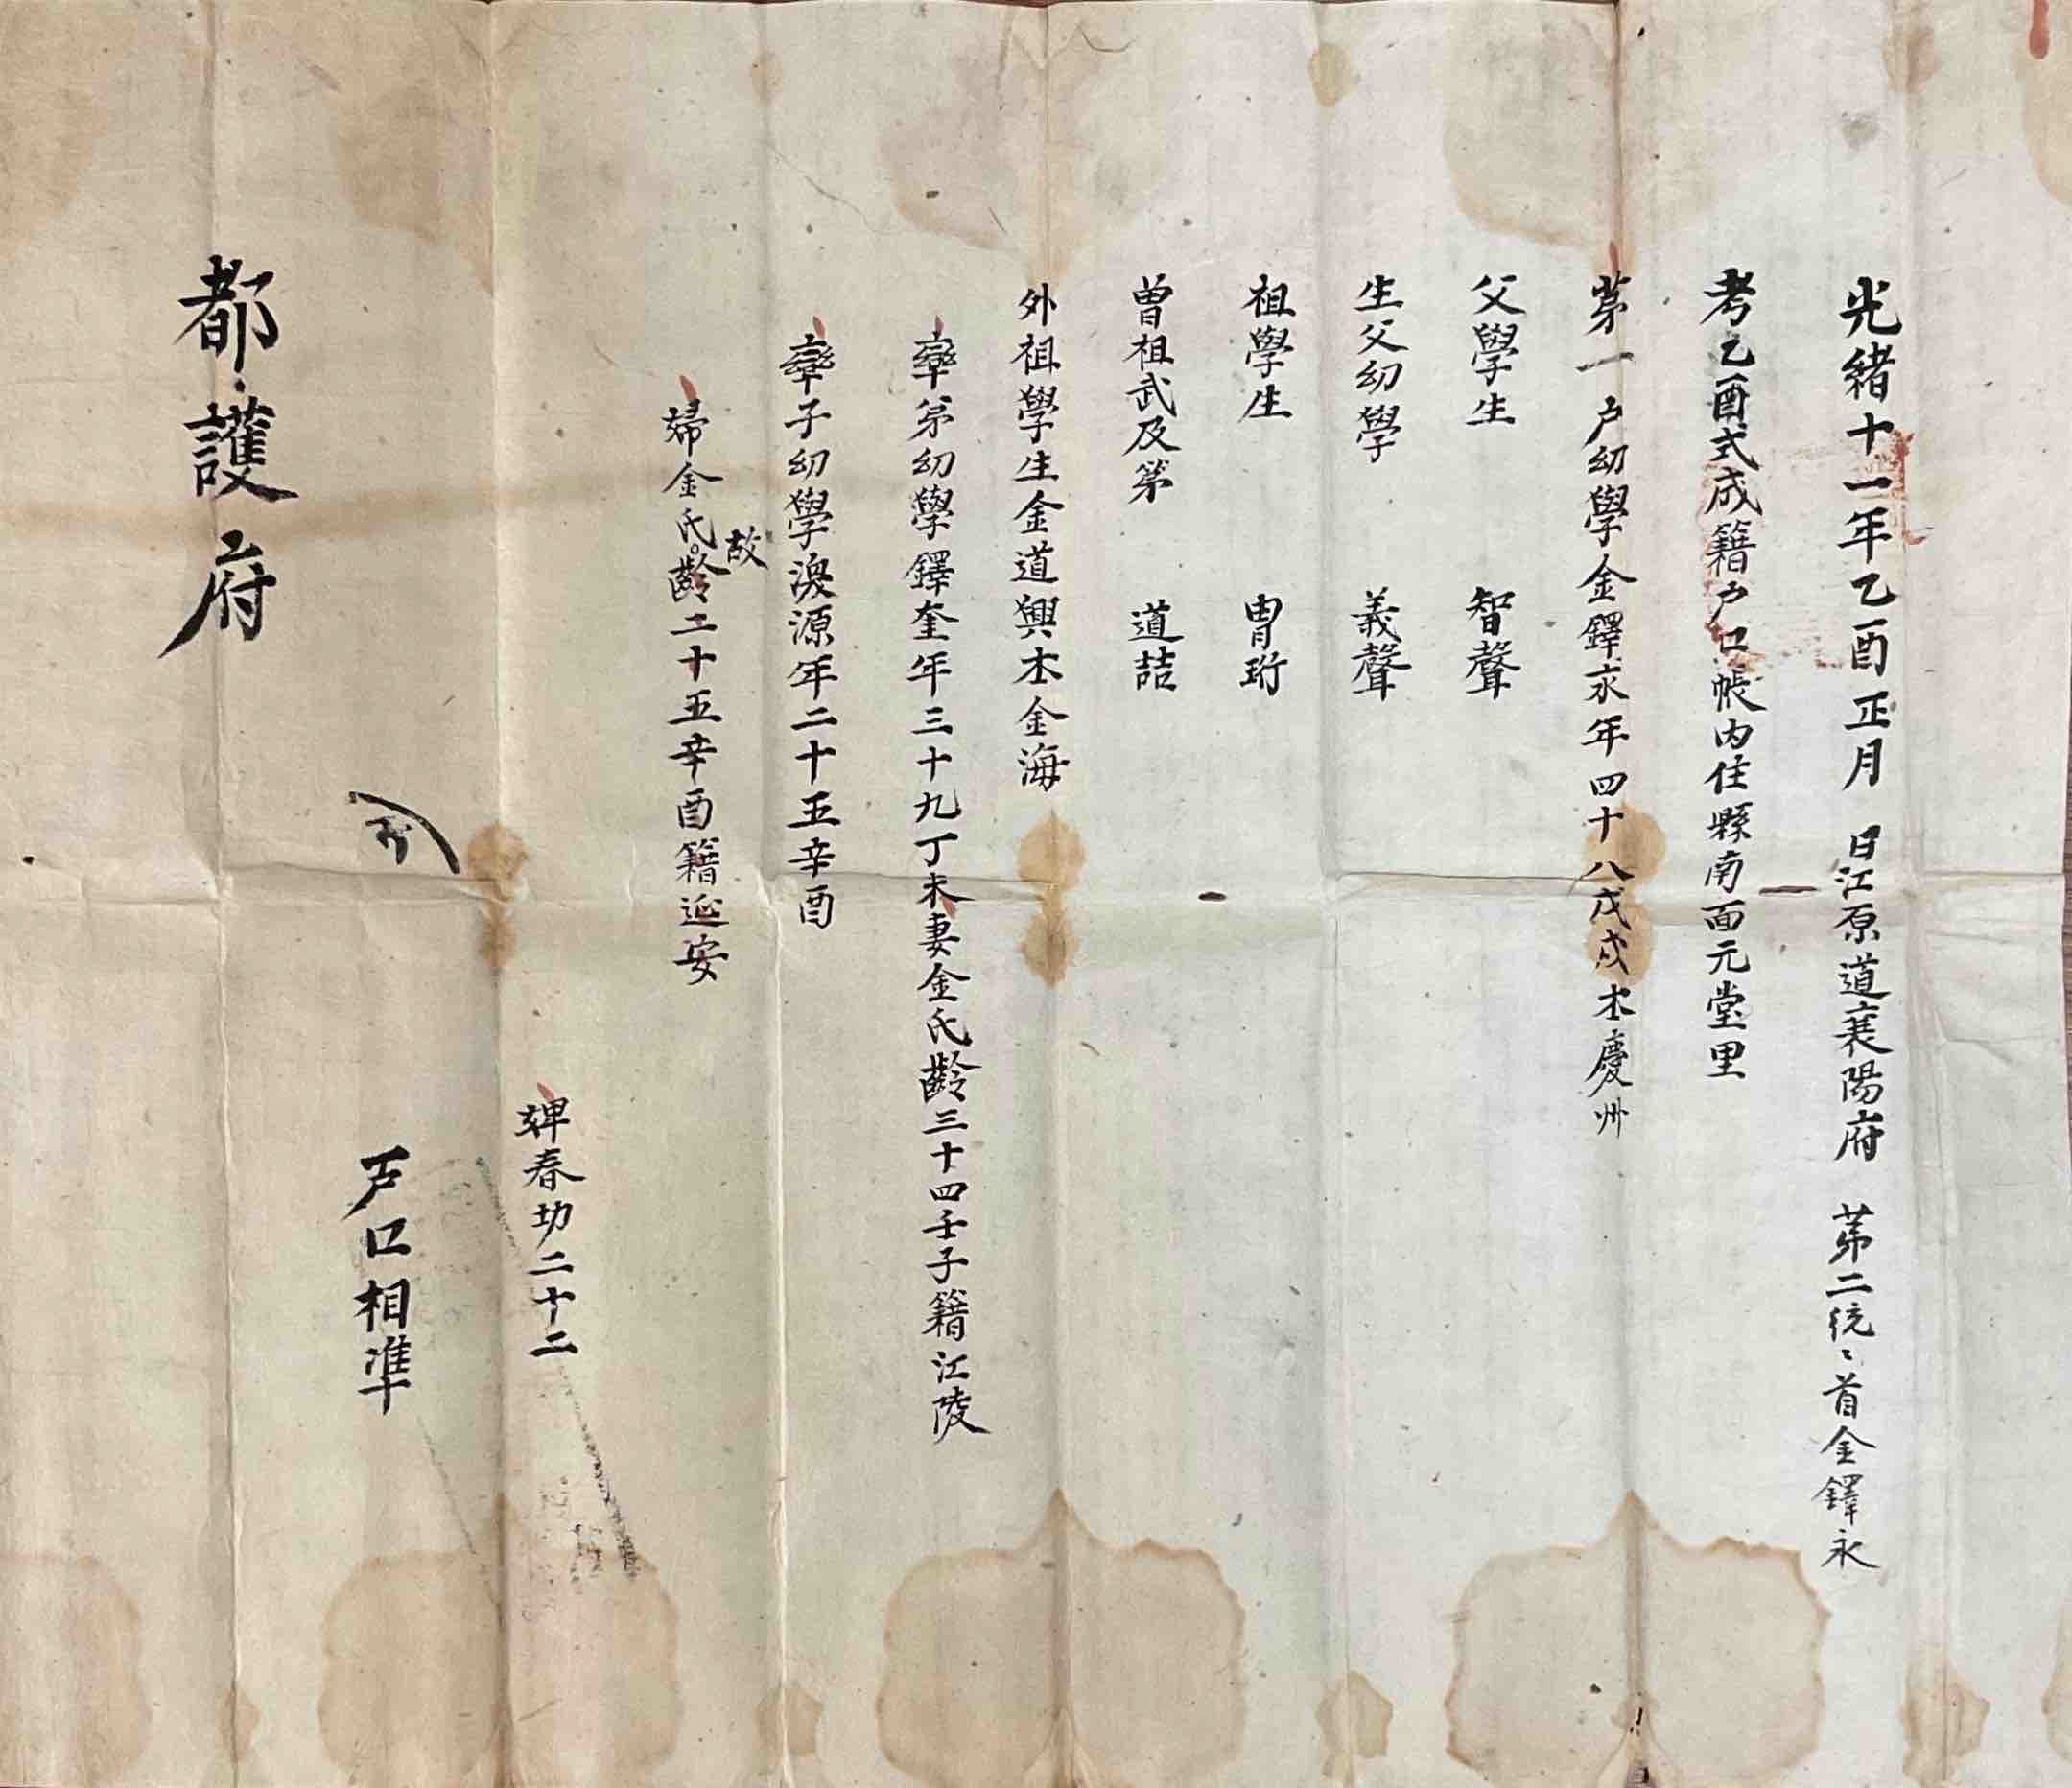 光緖十一年乙酉正月 日江原道襄陽府 第二統〻首金鐸永
考乙酉式成籍戶口帳內住縣南面元堂里
第一戶幼學金鐸永年四十八戊戌本慶州
父學生 智聲
生父幼學 義聲
祖學生 冑珩
曾祖武及第 道喆
外祖學生金道興本金海
率弟幼學鐸奎年三十九丁未妻金氏齡三十四壬子籍江陵
率子幼學渙源年二十五辛酉
婦金氏故齡二十五辛酉籍延安
婢春功二十二
戶口相準
都護府